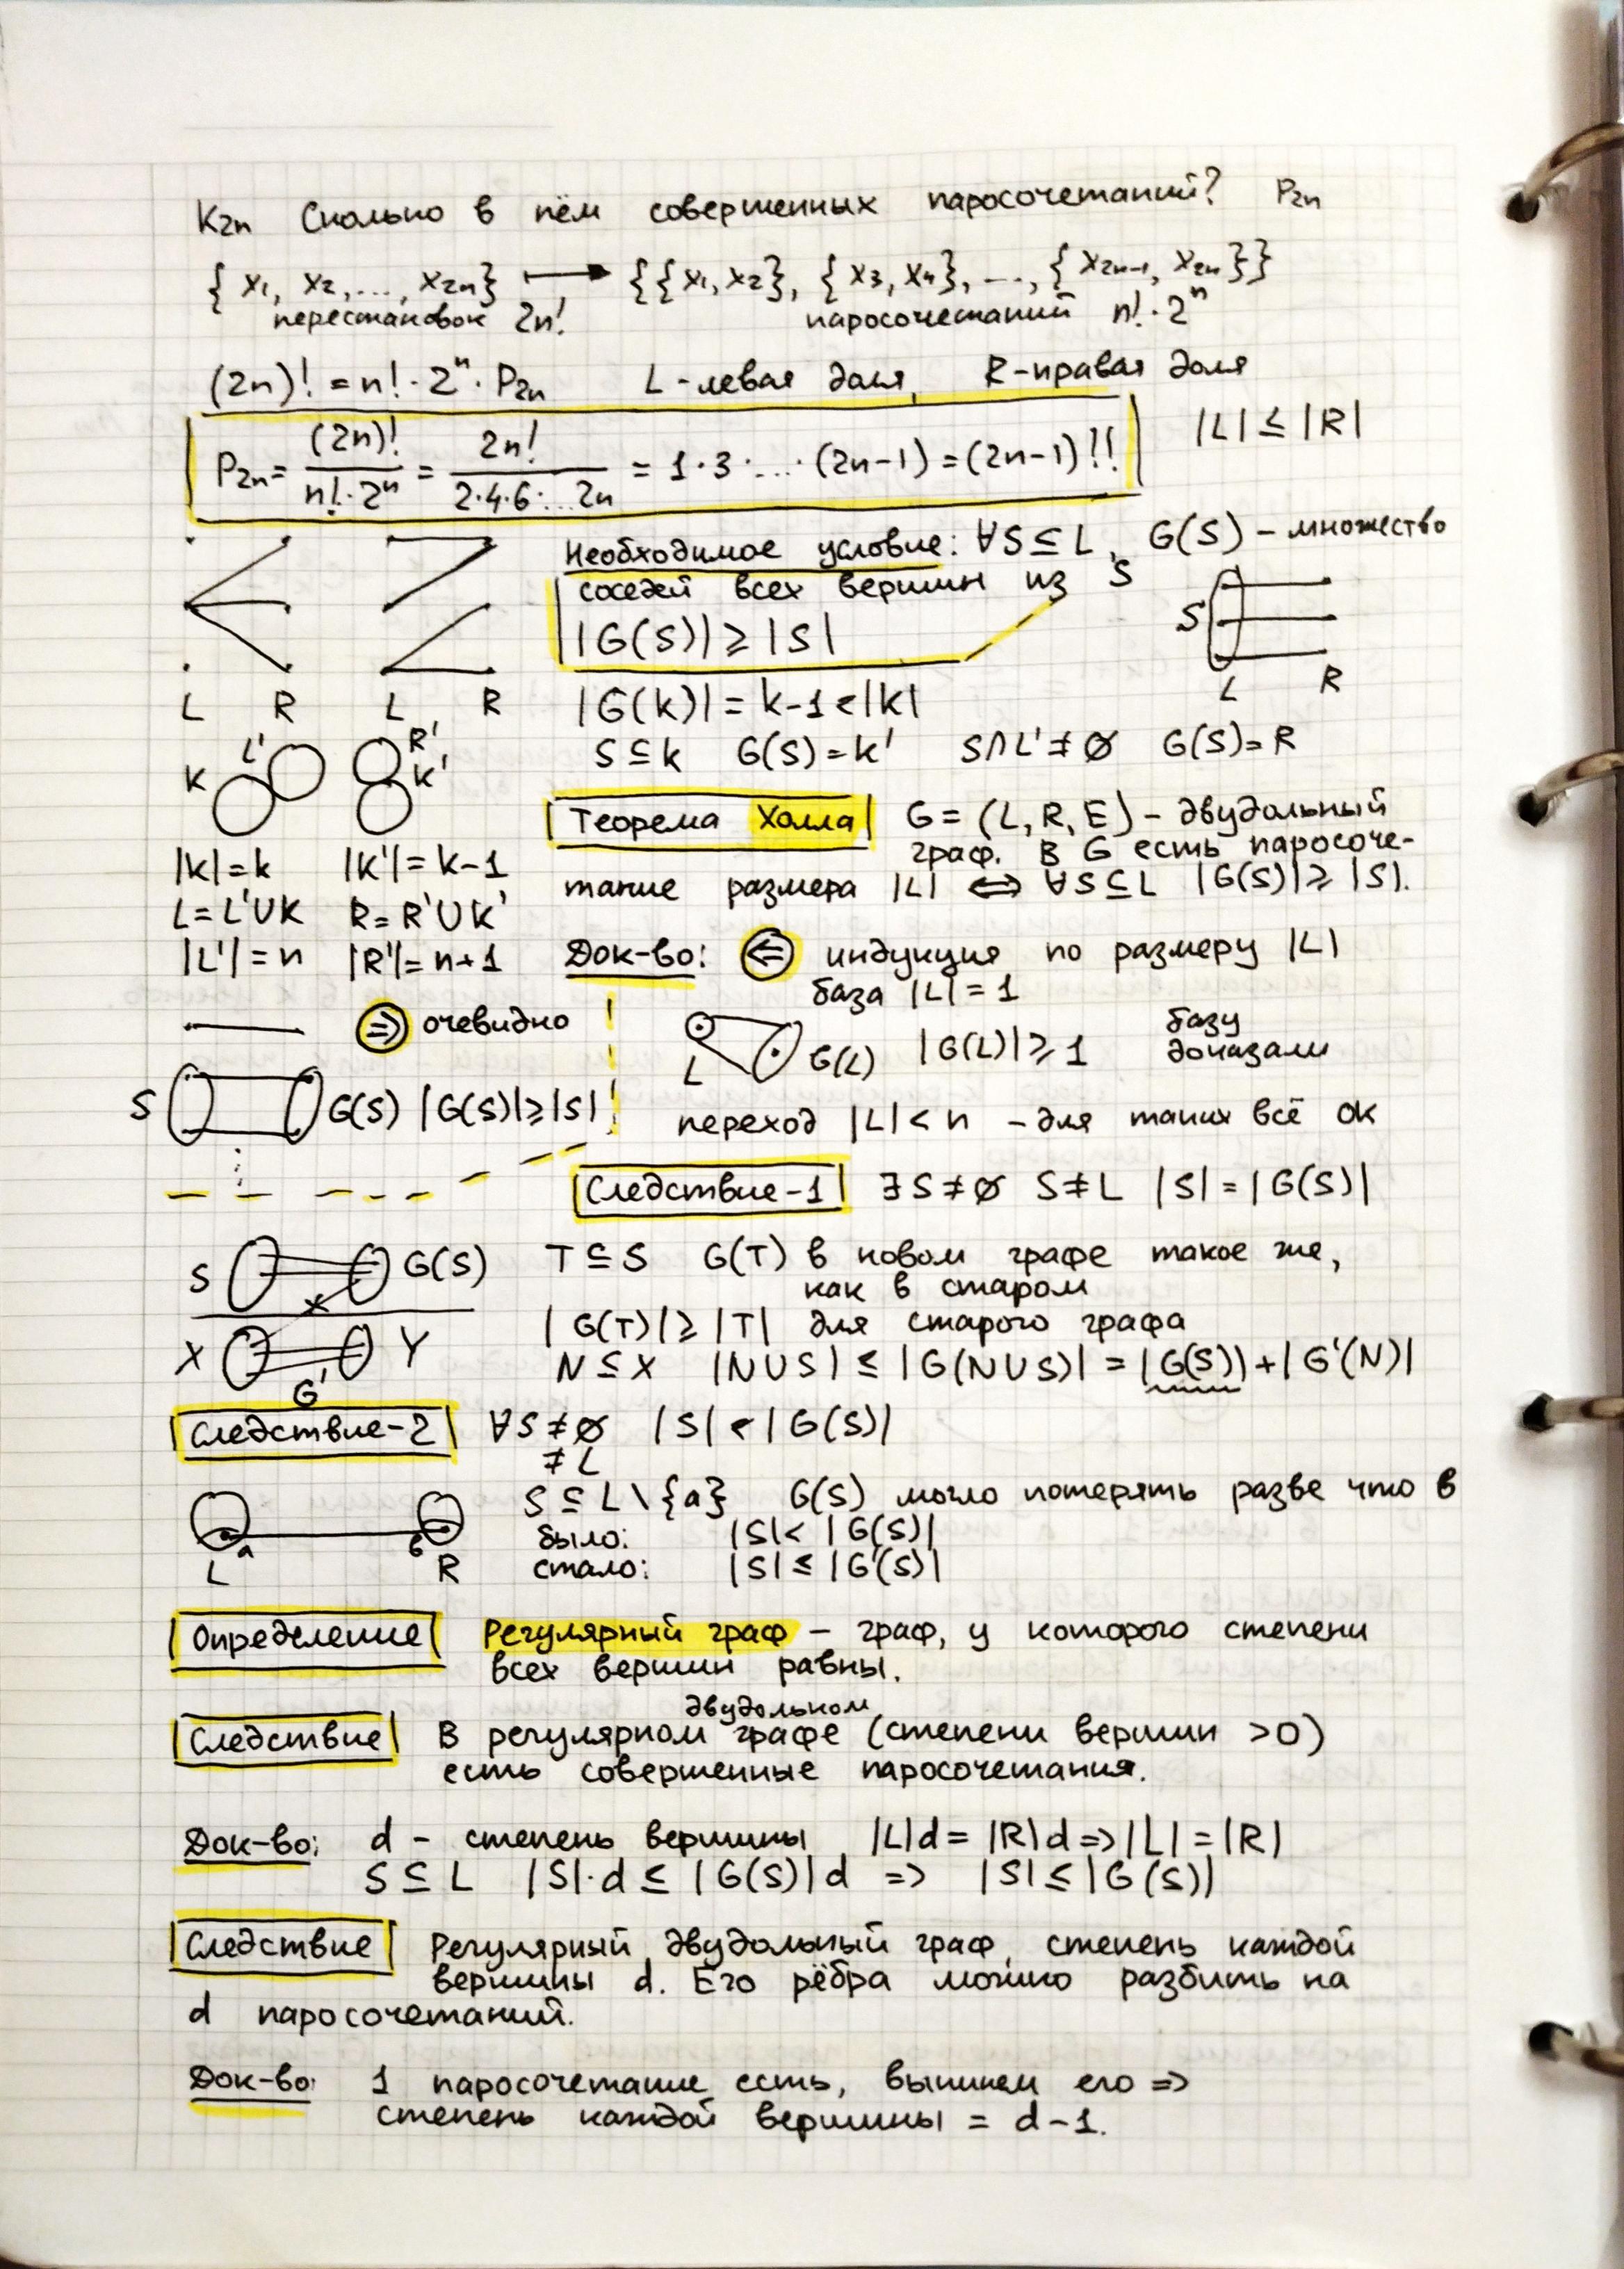 K₂ₙ Сколько в нём совершенных паросочетаний? P₂ₙ
{x₁, x₂, ..., x₂ₙ} ⟼ {{x₁, x₂}, {x₃, x₄}, ..., {x₂ₙ₋₁, x₂ₙ}}
перестановок 2n! паросочетаний n!·2ⁿ
(2n)! = n!·2ⁿ·P₂ₙ L-левая доля, R-правая доля
P₂ₙ = (2n)!/(n!·2ⁿ) = 2n!/(2·4·6·...2n) = 1·3·...·(2n-1) = (2n-1)!! |L| ≤ |R|
Необходимое условие: ∀S⊆L, G(S) – множество
соседей всех вершин из S
|G(S)| ≥ |S|
S
L R
L R L R
|G(k)| = k-1 < |k|
S⊆k G(S)=k' S∩L'≠∅ G(S)=R
L' R'
K K'
|K|=k |K'|=k-1
L=L'∪K R=R'∪K'
|L'|=n |R'|=n+1
Теорема Холла G = (L, R, E) – двудольный
граф. В G есть паросоче-
тание размера |L| ⟺ ∀S⊆L |G(S)| ≥ |S|.
Док-во: ⇐ индукция по размеру |L|
база |L| = 1
L G(L) |G(L)| ≥ 1 базу
доказали
⇒ очевидно
S G(S) |G(S)| ≥ |S|
переход |L| < n – для таких всё ок
Следствие-1 ∃S≠∅ S≠L |S| = |G(S)|
S G(S)
X Y
G'
T⊆S G(T) в новом графе такое же,
как в старом
|G(T)| ≥ |T| для старого графа
N⊆X |N∪S| ≤ |G(N∪S)| = |G(S)| + |G'(N)|
Следствие-2 ∀S≠∅ |S| < |G(S)|
≠L
S⊆L\{a} G(S) могло потерять разве что в
было: |S| < |G(S)|
стало: |S| ≤ |G'(S)|
a в
L R
Определение Регулярный граф – граф, у которого степени
всех вершин равны.
двудольном
Следствие В регулярном графе (степени вершин >0)
есть совершенные паросочетания.
Док-во: d – степень вершины |L|d = |R|d => |L| = |R|
S⊆L |S|·d ≤ |G(S)|d => |S| ≤ |G(S)|
Следствие Регулярный двудольный граф, степень каждой
вершины d. Его рёбра можно разбить на
d паросочетаний.
Док-во: 1 паросочетание есть, выкинем его =>
степень каждой вершины = d-1.